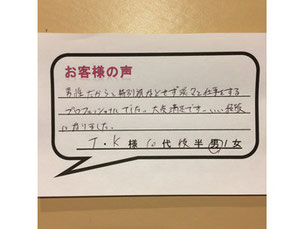 お客様の声
男性だからと特別扱などせず淡々と仕事をする
プロフェッショナルでした。大変満足です。いい経験
になりました。
T・K 様 代後半 男/女